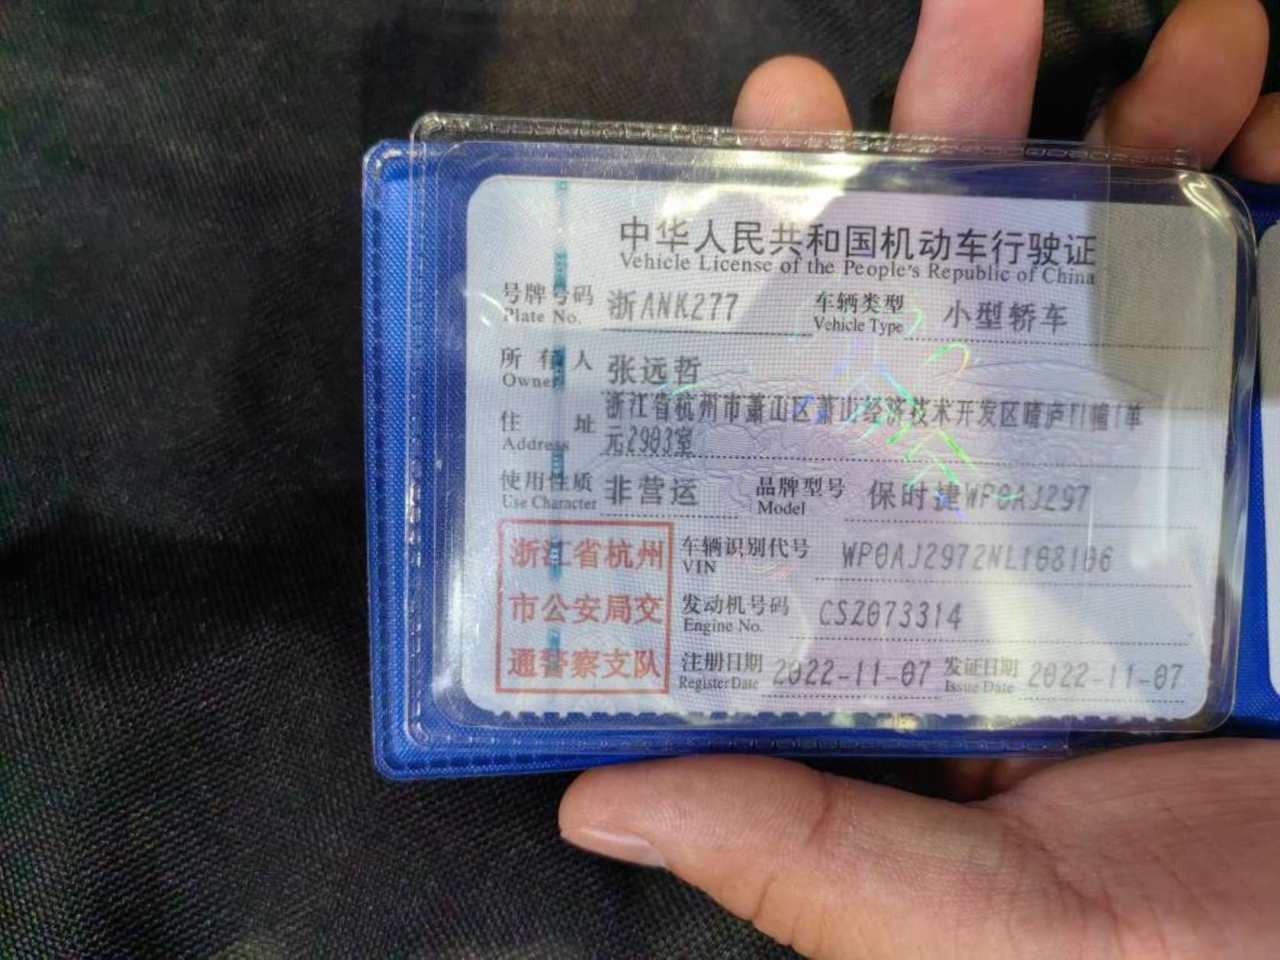 中华人民共和国机动车行驶证
Vehicle License of the People's Republic of China
号牌号码 浙ANK277 车辆类型 小型轿车
Plate No. Vehicle Type
所有人 张远哲
Owner
浙江省杭州市萧山区萧山经济技术开发区晴庐11幢1单
住址 元2903室
Address
使用性质 非营运 品牌型号 保时捷WP0AJ297
Use Character Model
浙江省杭州 车辆识别代号 WP0AJ2972NL108106
VIN
市公安局交 发动机号码 CSZ073314
Engine No.
通警察支队 注册日期 2022-11-07 发证日期 2022-11-07
Register Date Issue Date